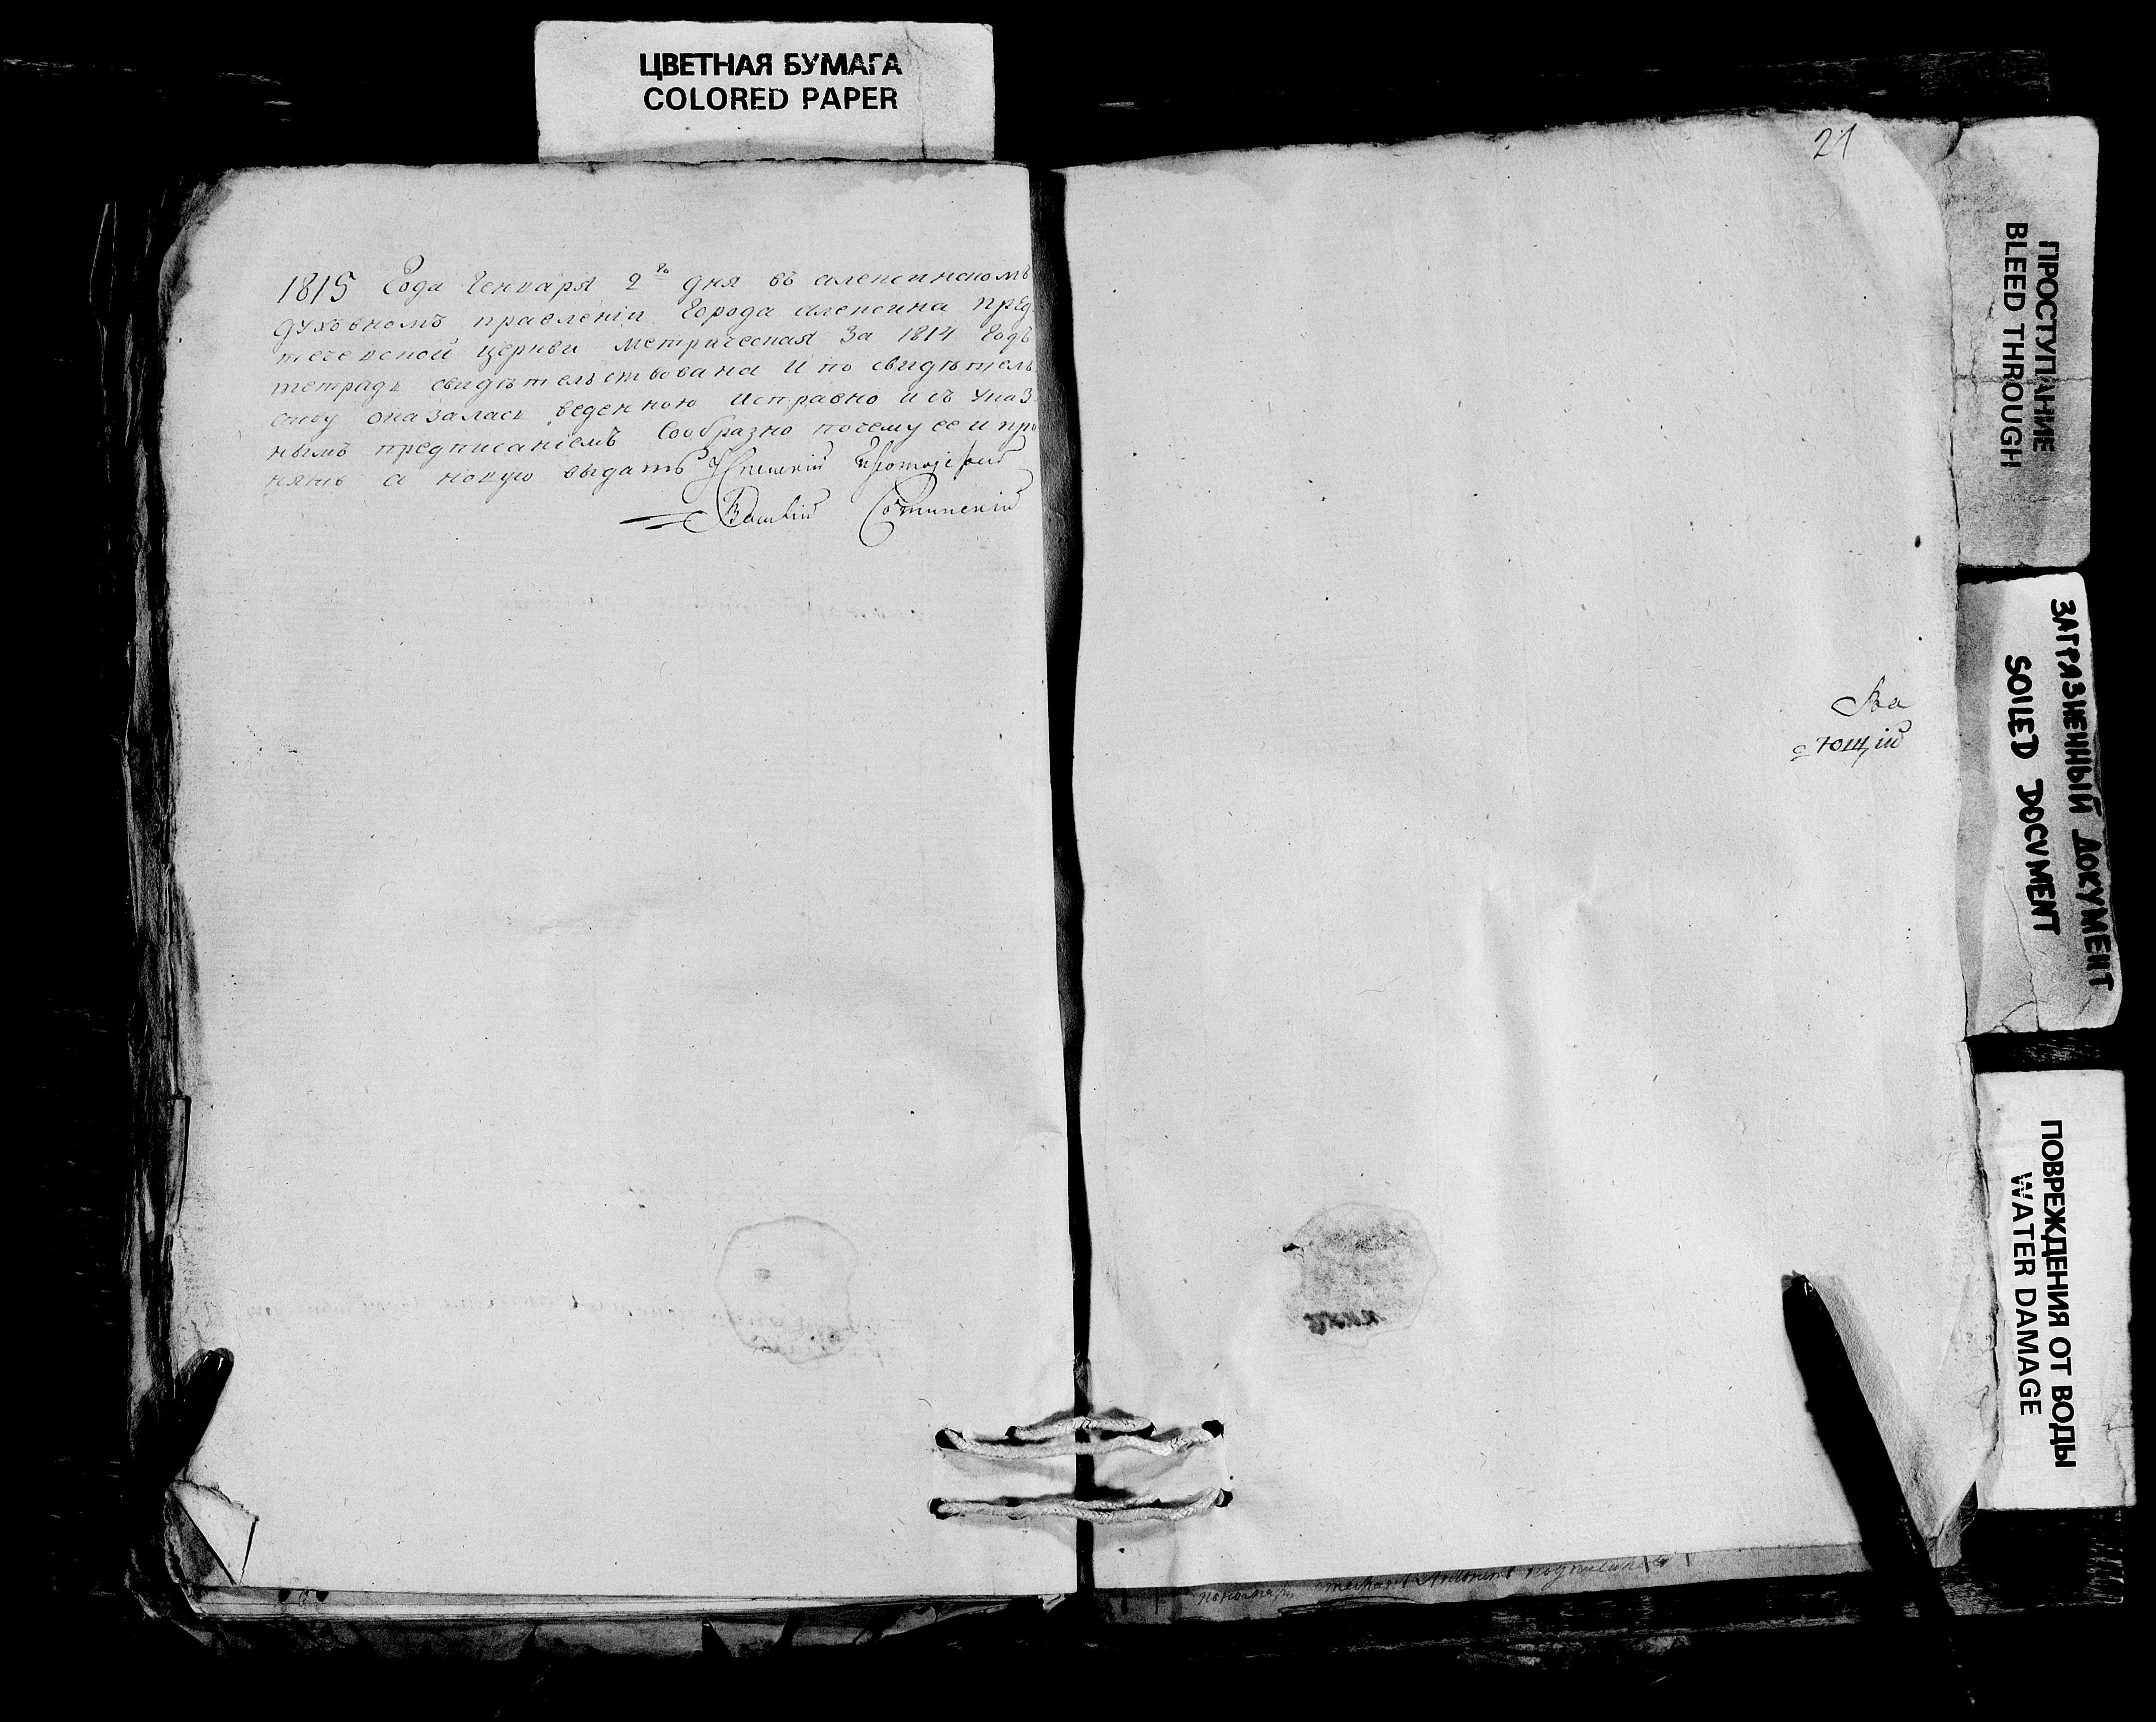 ЦВЕТНАЯ БУМАГА
COLORED PAPER
1815 Года Генваря 2го дня въ алексинскомъ
духовномъ правленіи города алексина пред
теченской церкви метрическая за 1814 годъ
тетрадь свидѣтельствована и по свидѣтель
ству оказалась веденною исправно и съ указ
нымъ предписаніемъ сообразно почему ее и при
нять а новую выдать протоіерей
21
ющій
ПРОСТУПАНИЕ
BLEED THROUGH
ЗАГРЯЗНЕННЫЙ ДОКУМЕНТ
SOILED DOCUMENT
ПОВРЕЖДЕНИЯ ОТ ВОДЫ
WATER DAMAGE